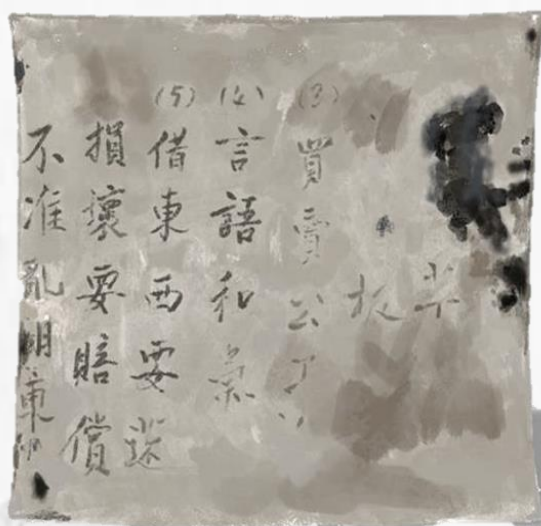 板
(3) 買賣公平
(4) 言語和氣
(5) 借東西要還
損壞要賠償
不准亂東